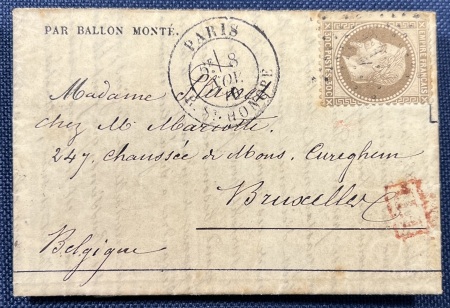 PAR BALLON MONTÉ.
PARIS
8
R. St. HONORE
EMPIRE FRANÇAIS
Madame
chez Mr Mariotte
247, chaussée de Mons, Cureghem
Bruxelles
Belgique